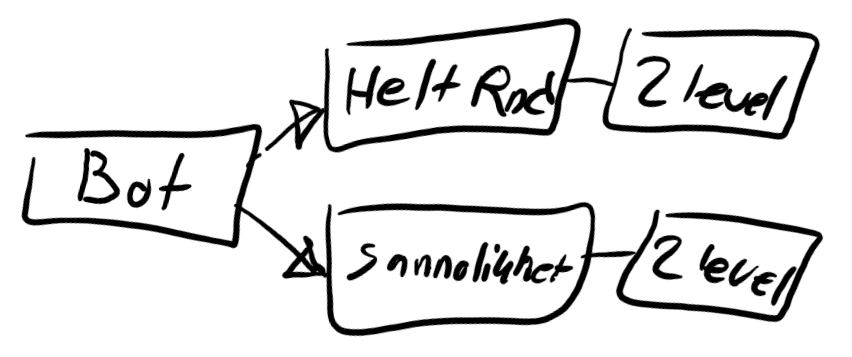 Bot
Helt Rnd
2 level
Sannolikhet
2 level